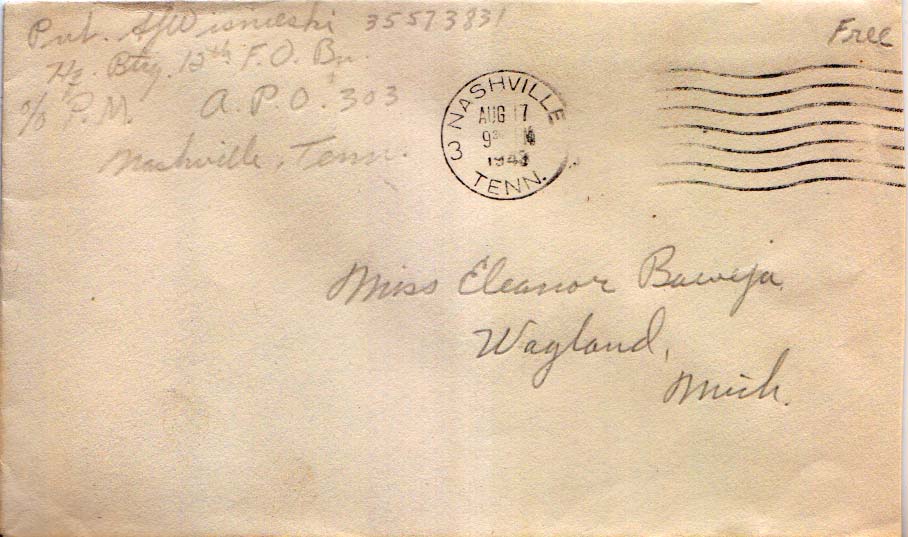 Pvt. A J Wisnieski 35573831
Hq. Btry. 12th F.O. Bn.
c/o P.M. A.P.O. 303
Nashville, Tenn.
Free
NASHVILLE
AUG 17
9 30 M
1943
TENN.
3
Miss Eleanor Baweja
Wayland,
Mich.